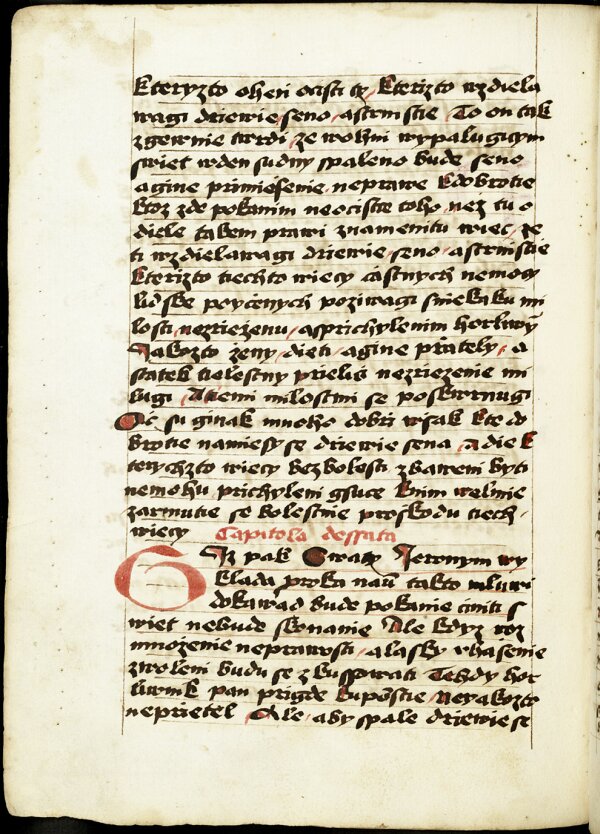 kteryzto ohen ocisti ty kterizto wzdiela
wagi driewie seno astrnistie To on tak
zgewnie twrdi ze wohni wypalugicym
swiet wden sudny spaleno bude seno
agine primiesenie neprawe kdobrotie
ktoz zde pokanim neocistie toho nez tu o
diele takem prawi znamenitu wiec ze
ti wzdielawagi driewie seno astrnistie
kterizto tiechto wiecy czastnych nemoy
lidske poyczenych poziwagi snieknku mi
losti nezriezenu asprichylenim horliwym
Jakozto zeny dieti agine prately a
statek tielestny prielis nezriezenie mi
lugi Atiemi milostmi se poskwrnugi
Ac su ginak mnoho dobri wsak kte do
brotie namiesy se driewie sena adie k
terychzto wiecy bez bolesti zbaweni byti
nemohu prichyleni gsuce knim welmie
zarmutie se bolestnie proskodu tiech
wiecy Capitola dessata
Giz pak Swaty Jeronym wy
klada proka nau takto mluwi
dokawad bude pokanie ciniti s
wiet nebude skonanie Ale kdyz roz
mnozenie neprawosti alasky vhasenie
zwoleni budu se zkussowati Tehdy hor
liwnik pan prigde kupostie Neyakozto
neprietel Ale aby spale driewie se